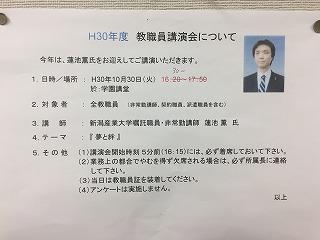 H30年度 教職員講演会について
今年は、蓮池薫氏をお迎えしてご講演いただきます。
1. 日時/場所 : H30年10月30日(火) 16:20~17:50
於:学園講堂
2. 対象者 : 全教職員 (非常勤講師、契約職員、派遣職員を含む)
3. 講師 : 新潟産業大学嘱託職員・非常勤講師 蓮池 薫 氏
4. テーマ : 『 夢と絆 』
5. その他 (1)講演会開始時刻5分前(16:15)には、必ず着席しておいて下さい。
(2)業務上の都合でやむを得ず欠席される場合は、必ず所属長に連絡
して下さい。
(3)当日は教職員証を装着してください。
(4)アンケートは実施しません。
以上